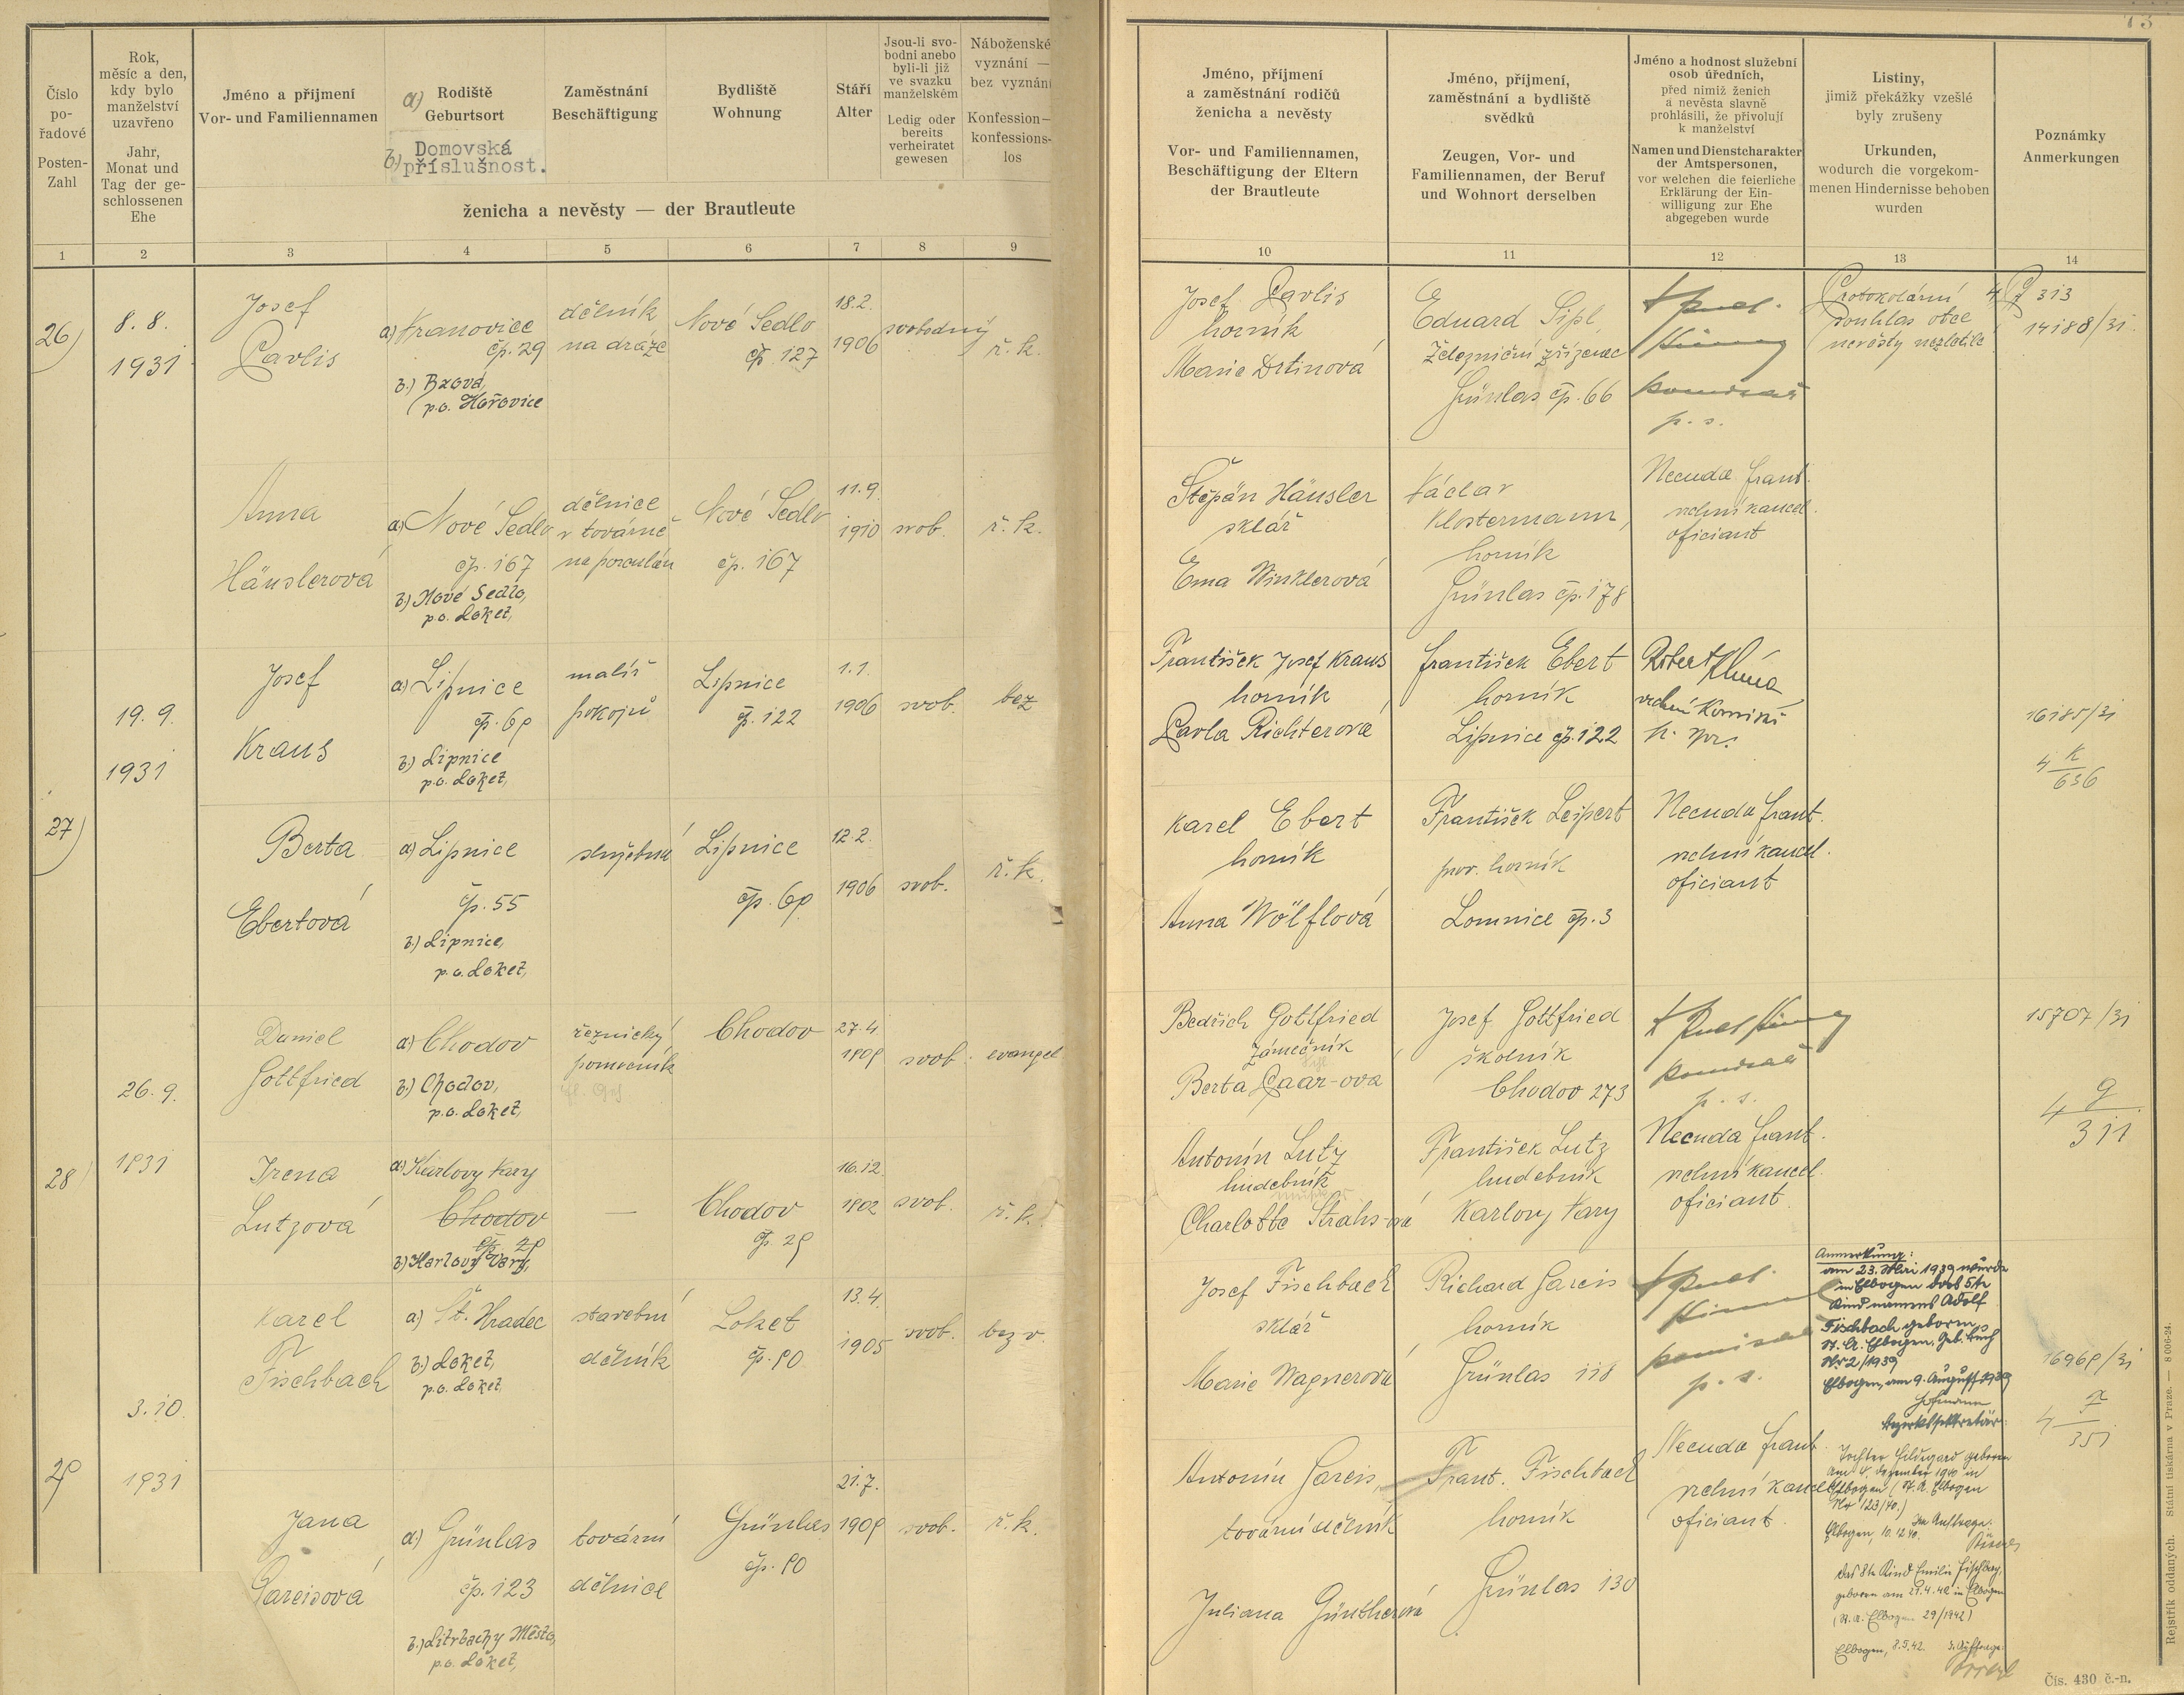 73
Číslo
po-
řadové
Posten-
Zahl
Rok,
měsíc a den,
kdy bylo
manželství
uzavřeno
Jahr,
Monat und
Tag der ge-
schlossenen
Ehe
Jméno a příjmení
Vor- und Familiennamen
a) Rodiště
Geburtsort
b) Domovská
příslušnost.
Zaměstnání
Beschäftigung
Bydliště
Wohnung
Stáří
Alter
Jsou-li svo-
bodni anebo
byli-li již
ve svazku
manželském
Ledig oder
bereits
verheiratet
gewesen
Náboženské
vyznání —
bez vyznání
Konfession—
konfessions-
los
ženicha a nevěsty — der Brautleute
Jméno, příjmení
a zaměstnání rodičů
ženicha a nevěsty
Vor- und Familiennamen,
Beschäftigung der Eltern
der Brautleute
Jméno, příjmení,
zaměstnání a bydliště
svědků
Zeugen, Vor- und
Familiennamen, der Beruf
und Wohnort derselben
Jméno a hodnost služební
osob úředních,
před nimiž ženich
a nevěsta slavně
prohlásili, že přivolují
k manželství
Namen und Dienstcharakter
der Amtspersonen,
vor welchen die feierliche
Erklärung der Ein-
willigung zur Ehe
abgegeben wurde
Listiny,
jimiž překážky vzešlé
byly zrušeny
Urkunden,
wodurch die vorgekom-
menen Hindernisse behoben
wurden
Poznámky
Anmerkungen
1 2 3 4 5 6 7 8 9 10 11 12 13 14
26)
8. 8.
1931
Josef
Pavlis
a) Vranovice
čp. 29
b.) Bzová,
p.o. Hořovice
dělník
na dráze
Nové Sedlo
čp. 127
18.2.
1906
svobodný
ř. k.
Josef Pavlis
horník
Marie Drtinová
Eduard Sipl,
železniční zřízenec
Grünlas čp. 66
p. s.
Protokolární
souhlas otce
nevěsty
4 P 313
14188/31.
Anna
Häuslerová
a) Nové Sedlo
čp. 167
b.) Nové Sedlo,
p.o. Loket,
dělnice
v továrně
na porculán
Nové Sedlo
čp. 167
11.9.
1910
svob.
ř. k.
Štěpán Häusler
sklář
Ema Winklerová
Václav
Klostermann,
horník
Grünlas čp. 178
Necuda Frant.
vrchní kancel.
oficiant
27)
19. 9.
1931
Josef
Kraus
a) Lipnice
čp. 69
b.) Lipnice
p.o. Loket,
malíř
pokojů
Lipnice
čp. 122
1.1.
1906
svob.
bez
František Josef Kraus
horník
Pavla Richterová
František Ebert
horník
Lipnice čp. 122
Robert
vrchní komisař
16185/31
4 K
636
Berta
Ebertová
a) Lipnice
čp. 55
b.) Lipnice,
p.o. Loket,
služebná
Lipnice
čp. 69
12.2.
1906
svob.
ř. k.
Karel Ebert
horník
Anna Wölflová
František Leipert
horník
Lomnice čp. 3
Necuda Frant.
vrchní kancel.
oficiant
28)
26. 9.
1931
Daniel
Gottfried
a) Chodov
b.) Chodov,
p.o. Loket,
řeznický
pomocník
Chodov
27.4.
1909
svob.
evangel.
Bedřich Gottfried
zámečník
Berta Paar-ova
Josef Gottfried
školník
Chodov 273
p. s.
15707/31
4 G
311
Irena
Lutzová
a) Karlovy Vary
Chodov
čp. 29
b.) Karlovy Vary,
—
Chodov
čp. 29
16.12.
1902
svob.
ř. k.
Antonín Lutz
hudebník
Charlotte Strahs-ová
František Lutz
hudebník
Karlovy Vary
Necuda Frant.
vrchní kancel.
oficiant.
29
3. 10.
1931
Karel
Fischbach
a) St. Hradec
b.) Loket,
p.o. Loket,
stavební
dělník
Loket
čp. 90
13.4.
1905
svob.
bez v.
Josef Fischbach
sklář
Marie Wagnerová
Richard Gareis
horník
Grünlas 118
p. s.
Anmerkung:
am 23. Mai 1939 wurde
in Elbogen das 5te
Kind namens Adolf
Fischbach geboren,
St. A. Elbogen, Geb. Buch
Nr. 2/1939
Elbogen, am 9. August 1939
Hofmann
Bezirkssekretär.
16969/31
4 F
351
Jana
Gareisová
a) Grünlas
čp. 123
b.) Litrbachy Město,
p.o. Loket,
tovární
dělnice
Grünlas
čp. 90
21.7.
1909
svob.
ř. k.
Antonín Gareis,
tovární dělník
Juliana Güntherová
Frant. Fischbach
horník
Grünlas 130
Necuda Frant.
vrchní kancel.
oficiant.
Tochter Hildegard geboren
am 4. Dezember 1940 in
Elbogen (St. A. Elbogen
Nr. 123/40.)
Elbogen, 10.12.40. Im Auftrage:
Das 8te Kind Emilie Fischbach,
geboren am 21.4.42 in Elbogen
(St. A. Elbogen 29/1942)
Elbogen, 8.5.42. I. Auftrage:
Čís. 430 č.-n.
Rejstřík oddaných. Státní tiskárna v Praze. — 8006-24.